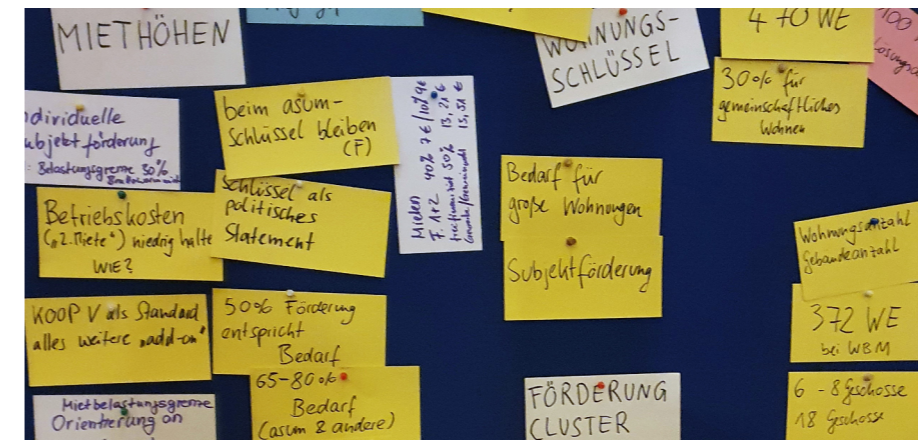 MIETHÖHEN
dividuelle
ubjektförderung
: Belastungsgrenze 30%
Betriebskosten
("2. Miete") niedrig halte
WIE?
KOOP V als Standard
alles weitere "add-on"
Mietbelastungsgrenze
Orientierung an
beim asum-
Schlüssel bleiben
(F)
Schlüssel als
politisches
Statement
50% Förderung
entspricht
Bedarf
65-80%
Bedarf
(asum & andere)
Mieten
F. 1+2 40% 7€/10%9€
freifinanziert 50% 13,21€
15,51€
WOHNUNGS-
SCHLÜSSEL
Bedarf für
große Wohnungen
Subjektförderung
FÖRDERUNG
CLUSTER
470 WE
30% für
gemeinschaftliches
Wohnen
100
Wohnungsanzahl
Gebäudeanzahl
372 WE
bei WBM
6 - 8 Geschosse
18 Geschosse